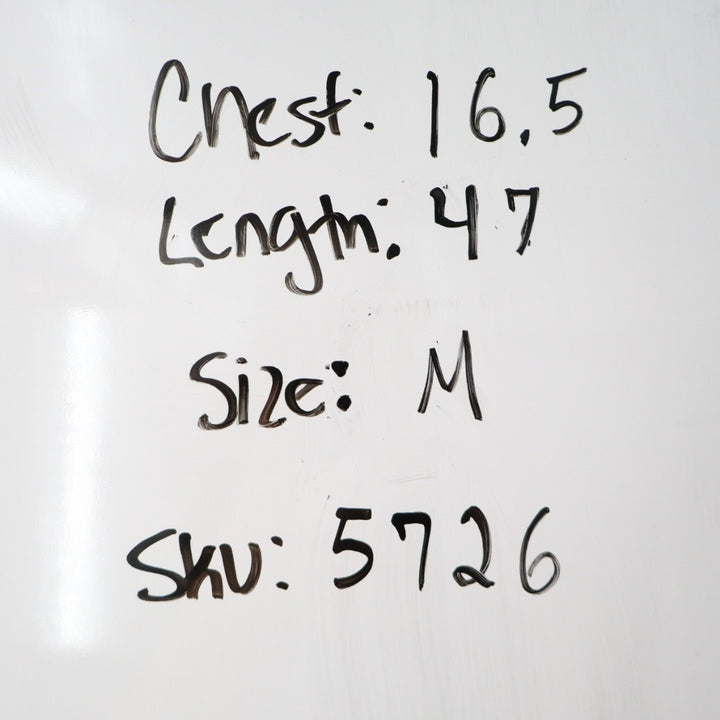 Chest: 16.5
Length: 47
Size: M
Sku: 5726